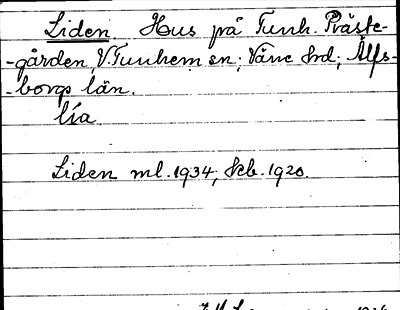 Liden. Hus på Tunh. Präste-
-gården, V. Tunhem sn; Väne hd; Älfs-
-borgs län.
lía
Liden ml. 1934; Jeb. 1920.